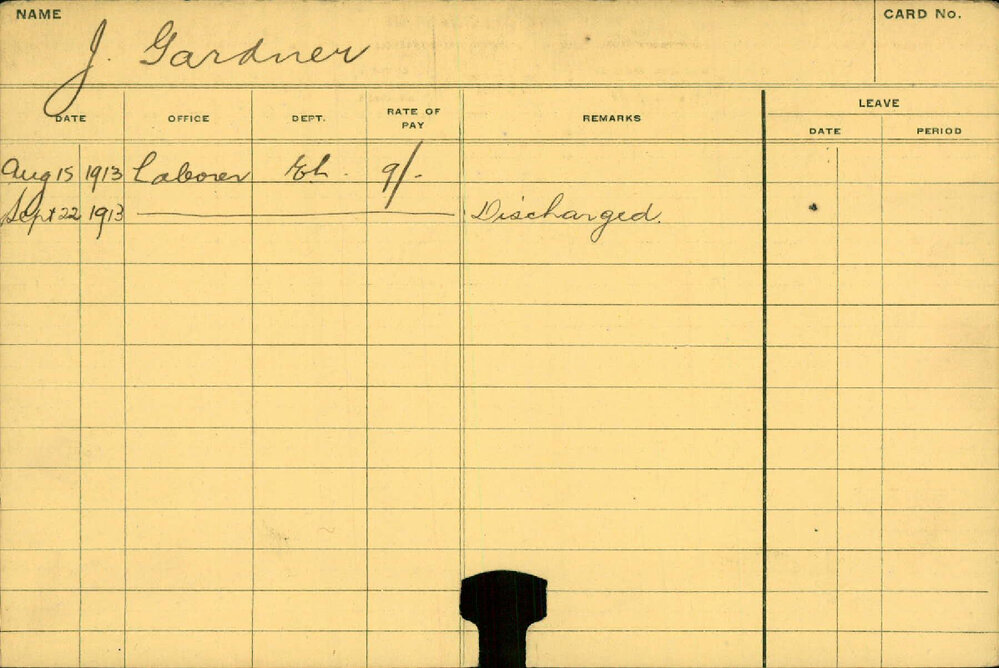 NAME
J. Gardner
CARD No.
DATE OFFICE DEPT. RATE OF PAY REMARKS LEAVE
DATE PERIOD
Aug 15 1913 Laborer 9/-
Sept 22 1913 Discharged.